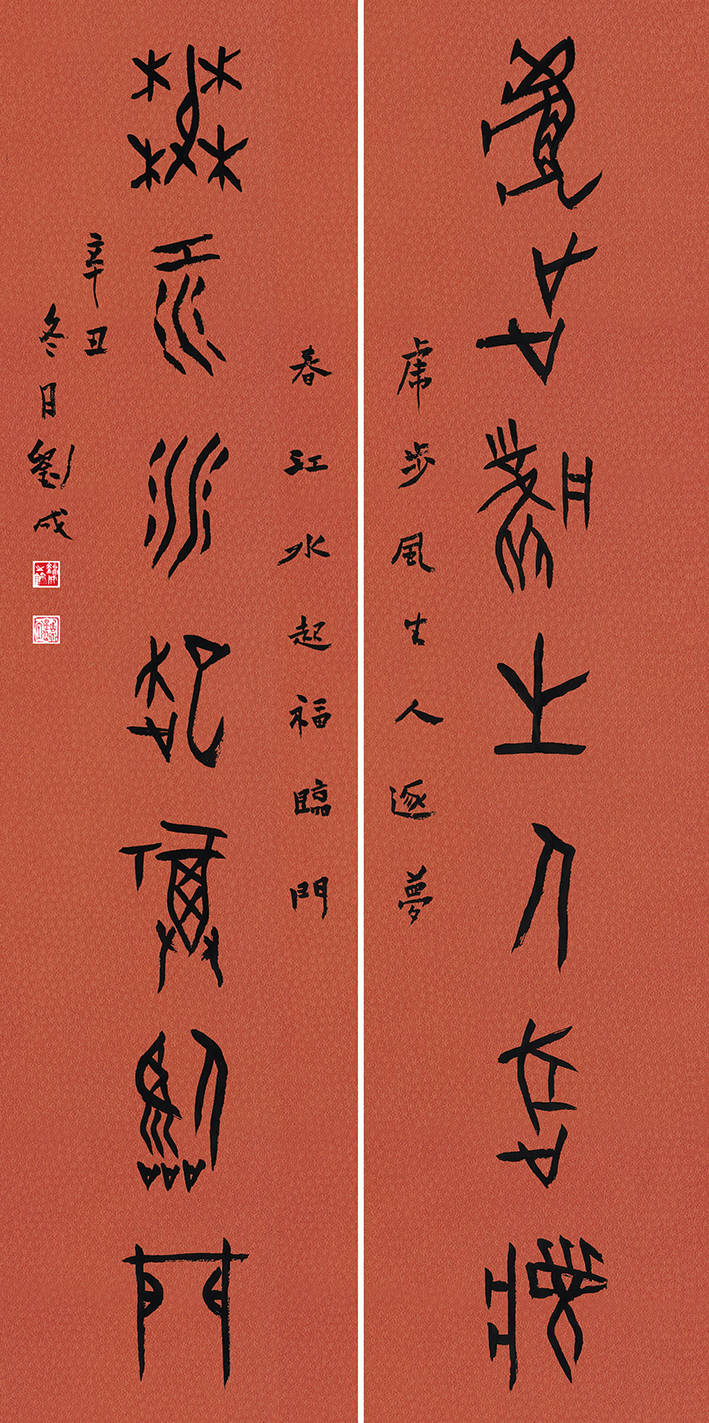 虎步風生人逐夢
虎步風生人逐夢
春江水起福臨門
春江水起福臨門
辛丑
冬日劉成